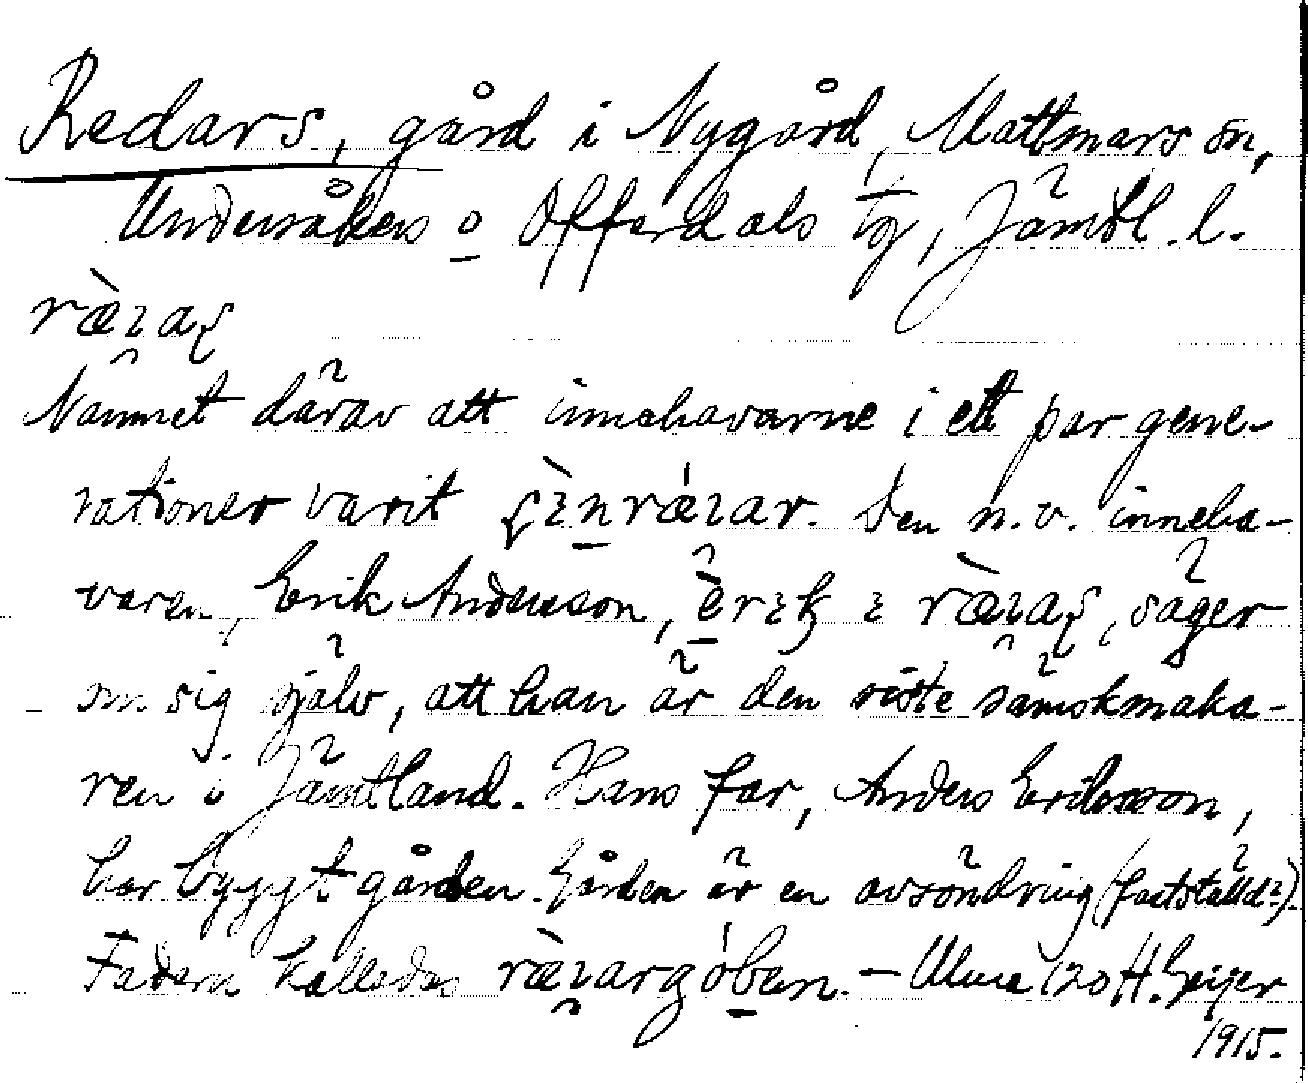 Redars, gård i Nygård, Mattmars sn,
Undersåkers o Offerdals tg, Jämtl. l.
Namnet därav att innehavarne i ett par gene-
rationer varit Den n.v. inneha-
varen, Erik Andersson, säger
om sig själv, att han är den siste sämskmaka-
ren i Jämtland. Hans far, Anders Eriksson,
har byggt gården. Gården är en avsöndring (fastställd?).
Fadern kallades – Ulma 120 H. Geijer
1915.